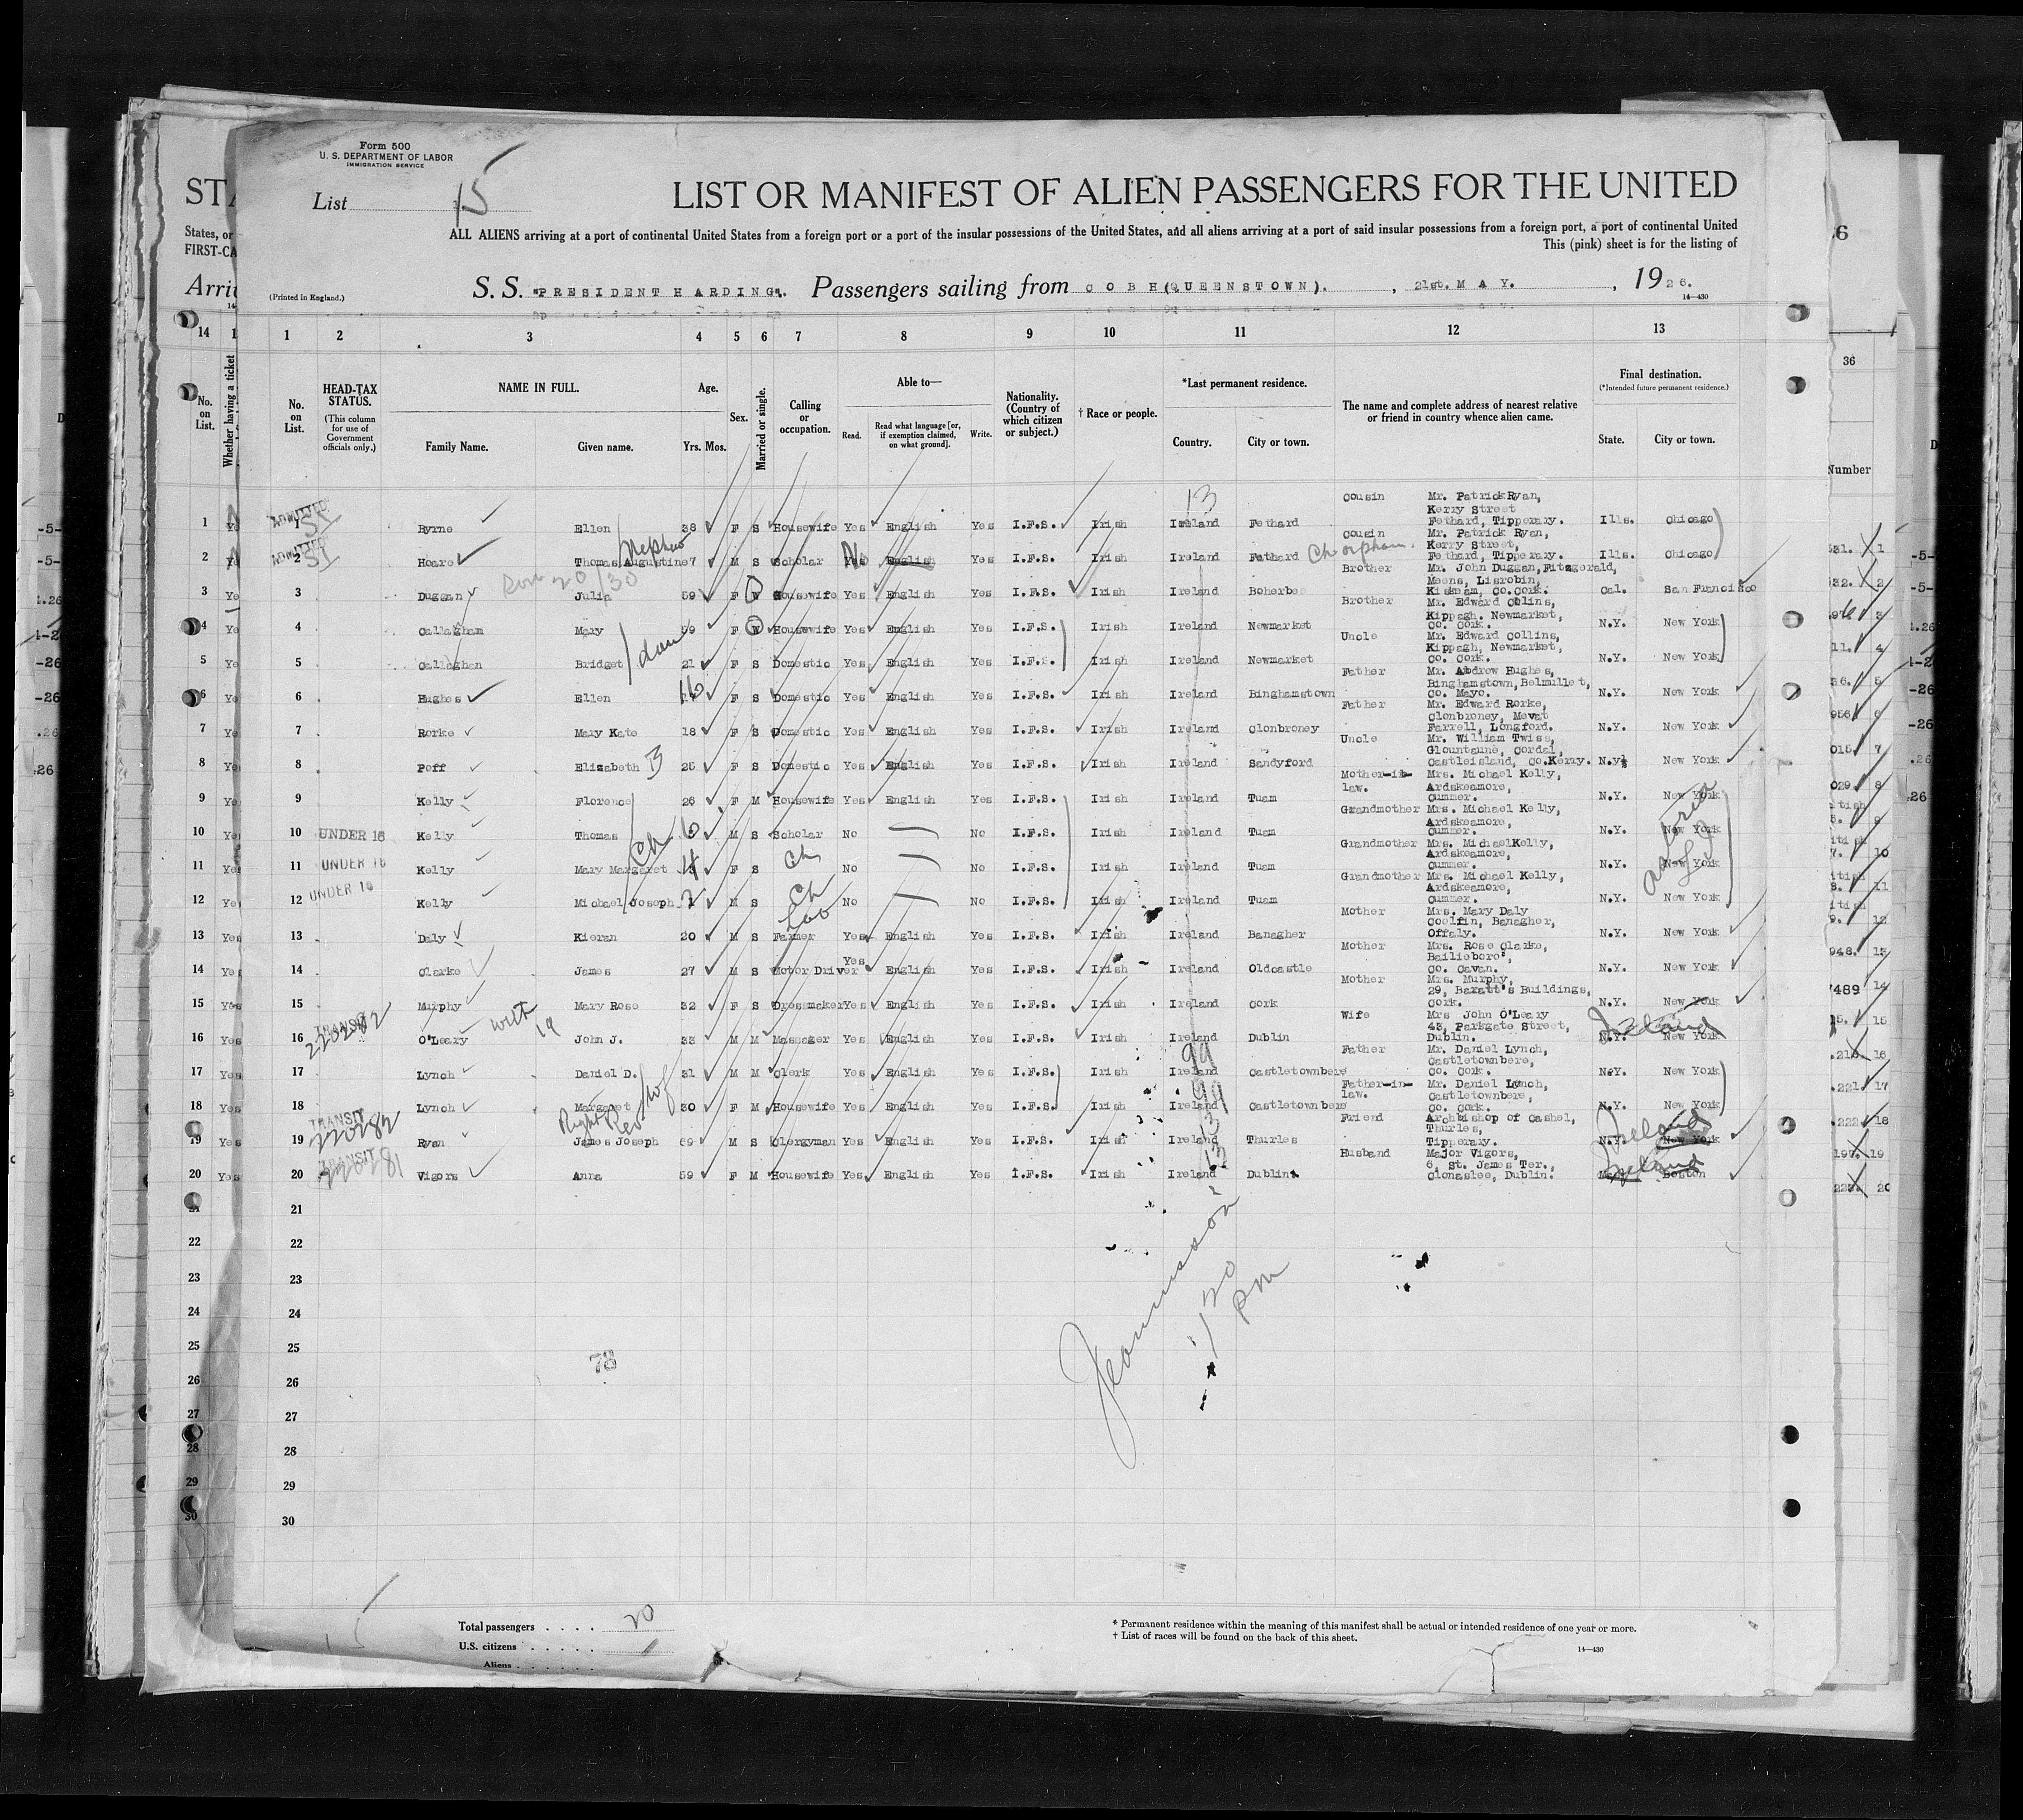 Form 500
U. S. DEPARTMENT OF LABOR
IMMIGRATION SERVICE
List 15
LIST OR MANIFEST OF ALIEN PASSENGERS FOR THE UNITED
ALL ALIENS arriving at a port of continental United States from a foreign port or a port of the insular possessions of the United States, and all aliens arriving at a port of said insular possessions from a foreign port, a port of continental United
This (pink) sheet is for the listing of
(Printed in England.) S. S. "PRESIDENT HARDING". Passengers sailing from COBH (QUEENSTOWN). , 21st. MAY. , 1926.
14—430
1 2 3 4 5 6 7 8 9 10 11 12 13
No. on List. HEAD-TAX STATUS. (This column for use of Government officials only.) NAME IN FULL. Family Name. Given name. Age. Yrs. Mos. Sex. Married or single. Calling or occupation. Able to— Read. Read what language [or, if exemption claimed, on what ground]. Write. Nationality. (Country of which citizen or subject.) † Race or people. *Last permanent residence. Country. City or town. The name and complete address of nearest relative or friend in country whence alien came. Final destination. (*Intended future permanent residence.) State. City or town.
13 Cousin Mr. Patrick Ryan,
Kerry Street
1 ADMITTED Byrne Ellen 38 F S Housewife Yes English Yes I.F.S. Irish Ireland Fethard Fethard, Tipperary. Ills. Chicago
Nephew Cousin Mr. Patrick Ryan,
Kerry Street,
2 ADMITTED Hoare Thomas Augustine 7 M S Scholar Yes No English Yes I.F.S. Irish Ireland Fethard Ch orphan. Fethard, Tipperary. Ills. Chicago
Brother Mr. John Duggan, Fitzgerald,
Meens, Lisrobin,
3 Duggan Julia 59 F W Housewife Yes English Yes I.F.S. Irish Ireland Kiskeam, Co. Cork. Cal. San Francisco
Brother Mr. Edward Colins,
Kippagh, Newmarket,
4 Callaghan Mary 59 F W Housewife Yes English Yes I.F.S. Irish Ireland Newmarket Co. Cork. N.Y. New York
Uncle Mr. Edward Collins,
Kippagh, Newmarket,
5 Callaghan Bridget 21 F S Domestic Yes English Yes I.F.S. Irish Ireland Newmarket Co. Cork. N.Y. New York
Father Mr. Andrew Hughes,
Binghamstown, Belmullet,
6 Hughes Ellen 16 F S Domestic Yes English Yes I.F.S. Irish Ireland Binghamstown Co. Mayo. N.Y. New York
Father Mr. Edward Rorke,
Clonbroney, Mevat
7 Rorke Mary Kate 18 F S Domestic Yes English Yes I.F.S. Irish Ireland Clonbroney Farrell, Longford. N.Y. New York
Uncle Mr. William Twiss,
Glountaune, Cordal,
8 Poff Elizabeth B 25 F S Domestic Yes English Yes I.F.S. Irish Ireland Sandyford Castleisland, Co. Kerry. N.Y. New York
Mother-in- Mrs. Michael Kelly,
law. Ardskeamore,
9 Kelly Florence 26 F M Housewife Yes English Yes I.F.S. Irish Ireland Tuam Cummer. N.Y. New York
Grandmother Mrs. Michael Kelly,
Ardskeamore,
10 UNDER 16 Kelly Thomas 6 M S Scholar No — No I.F.S. Irish Ireland Tuam Cummer. N.Y. New York
Grandmother Mrs. Michael Kelly,
Ardskeamore,
11 UNDER 16 Kelly Mary Margaret 4 F S Ch No — No I.F.S. Irish Ireland Tuam Cummer. N.Y. New York
Grandmother Mrs. Michael Kelly,
Ardskeamore,
12 UNDER 16 Kelly Michael Joseph M S Ch No — No I.F.S. Irish Ireland Tuam Cummer. N.Y. New York
Mother Mrs. Mary Daly
Coolfin, Banagher,
13 Daly Kieran 20 M S Farmer Yes English Yes I.F.S. Irish Ireland Banagher Offaly. N.Y. New York
Mother Mrs. Rose Clarke,
Bailieboro',
14 Clarke James 27 M S Motor Driver Yes English Yes I.F.S. Irish Ireland Oldcastle Co. Cavan. N.Y. New York
Mother Mrs. Murphy,
29, Baratt's Buildings,
15 Murphy Mary Rose 32 F S Dressmaker Yes English Yes I.F.S. Irish Ireland Cork Cork. N.Y. New York
Wife Mrs John O'Leary
43, Parkgate Street,
16 TRANSIT O'Leary with 19 John J. 33 M M Massager Yes English Yes I.F.S. Irish Ireland Dublin Dublin. Ireland N.Y. New York
99 Father Mr. Daniel Lynch,
Castletownbere,
17 Lynch Daniel D. 31 M M Clerk Yes English Yes I.F.S. Irish Ireland Castletownbere Co. Cork. N.Y. New York
99 Father-in- Mr. Daniel Lynch,
law. Castletownbere,
18 Lynch Margaret wf 30 F M Housewife Yes English Yes I.F.S. Irish Ireland Castletownbere Co. Cork. N.Y. New York
Right Rev Friend Archbishop of Cashel,
Thurles,
19 TRANSIT 220282 Ryan James Joseph 69 M S Clergyman Yes English Yes I.F.S. Irish Ireland Thurles Tipperary. Ireland N.Y. New York
13 Husband Major Vigors,
6, St. James Ter.,
20 TRANSIT 220281 Vigors Anna 59 F M Housewife Yes English Yes I.F.S. Irish Ireland Dublin. Clonaslee, Dublin. Ireland Boston
21
22
23
24
25
26
27
28
29
30
78
1 20
pm
15
Total passengers . . . . 20
U.S. citizens . . . . .
Aliens . . . . . .
* Permanent residence within the meaning of this manifest shall be actual or intended residence of one year or more.
† List of races will be found on the back of this sheet.
14—430